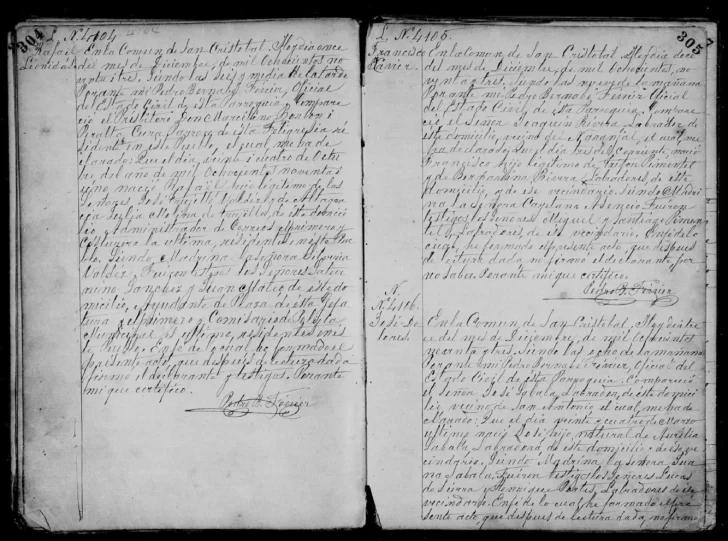 304
L. No. 4104
Rafael
Leonidas
En la Comun de San Cristobal. Hoy dia once
del mes de Diciembre, de mil Ochocientos no
venta i tres. Siendo las seis y media de la tarde
Por ante mi Pedro Bernabe Frenier, Oficial
del Estado Civil de esta Parroquia, Compare
ció el Presbítero Don Marciano Bonbon i
Peralta Cura Parroco de esta Feligresia re
sidente en este Pueblo, el cual me ha de
clarado: Que el dia veinte i cuatro de Octu
bre, del año de mil Ochocientos noventa i
uno nació Rafael hijo legitimo de los
Señores José Trujillo Valdez y de Altagra
cia Julia Molina de Trujillo, de este domici
lio, Administrador de Correos el primero y
Costurera la ultima, residentes en este Pue
blo. Siendo Madrina la Señora Silveria
Valdez, Fueron testigos los Señores Satur
nino Sanchez y Juan Mateo de este do
micilio, Ayudante de Plaza de esta Jefa
tura el primero y Comisario de Policia
Municipal el ultimo, residentes en este
Pueblo. En fé de lo cual, he formado el
presente acto que despues de lectura dada
firmó el declarante y testigos. Por ante
mi que certifico.
Pedro B. Frenier
305
L. No. 4105.
Francisco
Xavier.
En la Comun de San Cristobal. Hoy dia doce
del mes de Diciembre, de mil Ochocientos, no
venta y tres, siendo las nueve de la mañana
Por ante mi Pedro Bernabé Frenier Oficial
del Estado Civil de esta Parroquia, Compare
ció, el Señor Joaquin Rivera Labrador de
este domicilio, vecino de Naranjal el cual me
ha declarado: Que el dia tres del corriente, nació
Francisco hijo legitimo de Trifon Pimentel
y de Bernardina Rivera, Labradores de este
domicilio, y de ese vecindario. Siendo Madri
na la Señora Cayetana Asencio Fueron
testigos los Señores Miguel y Santiago Pimen
tel, Labradores de ese vecindario. En fé de lo
cual, he formado el presente acto, que despues
de lectura dada no firmó el declarante, por
no saber. Por ante mi que certifico.
Pedro B. Frenier
N.
No. 4106.
José Do
lores.
En la Comun de San Cristobal, Hoy dia tre
ce del mes de Diciembre, de mil Ochocientos
noventa y tres. Siendo las ocho de la mañana
Por ante mi Pedro Bernabe Frenier, Oficial del
Estado Civil de esta Parroquia, Compareció
el Señor José Zabala Labrador, de este domici
lio, vecino de San Antonio el cual, me ha de
clarado: Que el dia veinte y cuatro de Marzo
ultimo nació José, hijo natural de Aurelia
Zabala Labradora, de este domicilio y de ese ve
cindario, Siendo Madrina la Señora Jua
na Zabala, Fueron testigos los Señores Lucas
de Sierra y Henrique Portes, Labradores de ese
vecindario. En fé de lo cual, he formado el pre
sente acto, que despues de lectura dada, no firmó